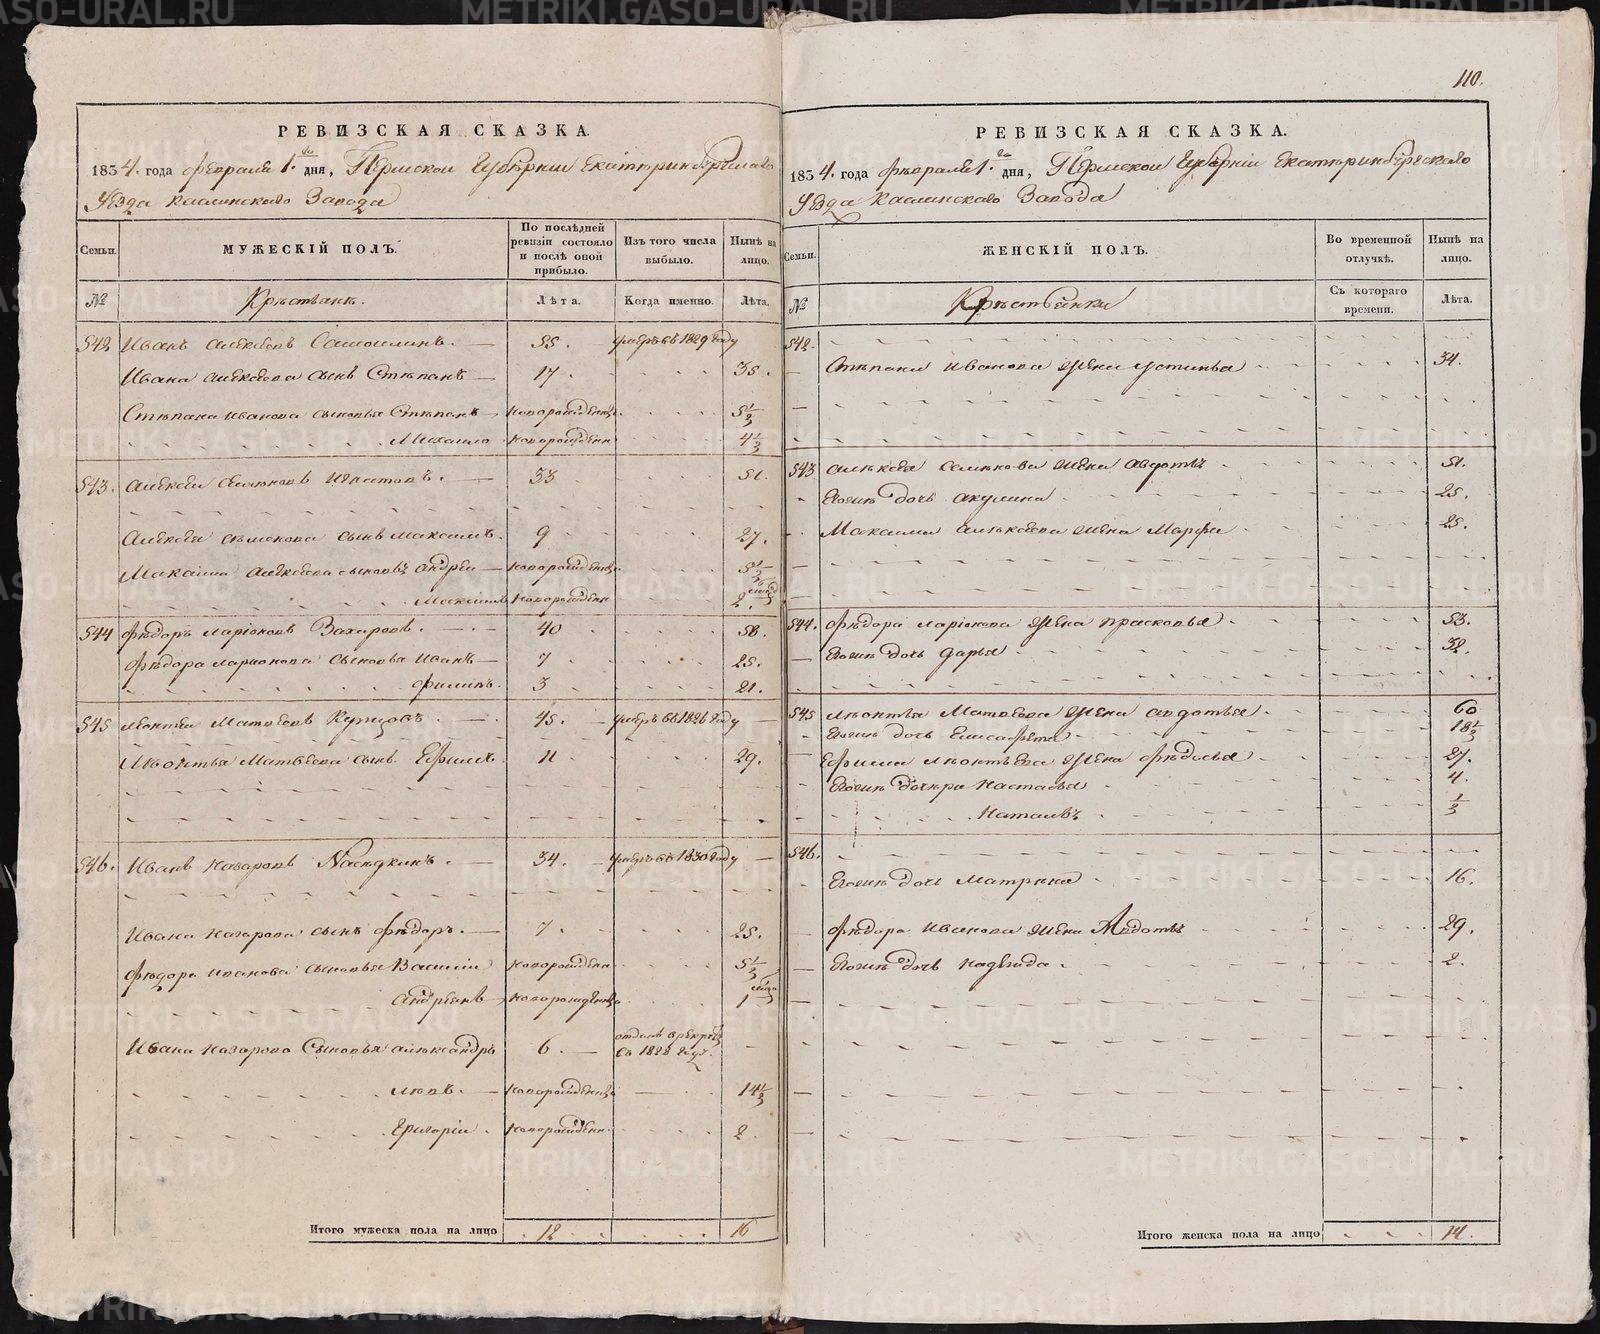 110.
РЕВИЗСКАЯ СКАЗКА.
1834. года февраля 1. го дня, Пермской Губернии Екатеринбургскаго
Уезда Каслинскаго Завода
Семьи. МУЖЕСКІЙ ПОЛЪ. По послѣдней ревизіи состояло и послѣ оной прибыло. Изъ того числа выбыло. Нынѣ на лицо.
№ Крестьяне. Лѣта. Когда именно. Лѣта.
542 Иванъ Алексеевъ Самоилинъ. 55. умеръ въ 1829 году
Ивана Алексеева сынъ Степанъ 17. 35.
Степана Иванова сыновья Степанъ новорожденны 5½
Михаило новорожденн 4½
543. Алексеи Семеновъ 33 51.
Алексея Семенова сынъ Максимъ. 9 27.
Максима Алексеева сыновья Андреи новорожденны 5½
Максимъ новорожденн 2.
544 Федоръ Ларионовъ Захаровъ. 40 58.
Федора Ларионова сыновья Иванъ 7 25.
Филипъ. 3 21.
545 Леонтеи Матвеевъ Купцовъ. 45. умеръ въ 1826 году
Леонтья Матвеева сынъ Ефимъ. 11 29.
546. Иванъ Назаровъ Наседкинъ. 34. умеръ въ 1830 году
Ивана Назарова сынъ Федоръ. 7. 25.
Федора Иванова сыновья Василии новорожденн 5½
Андреянъ новорожденны 1
Ивана Назарова Сыновья Александръ 6. отданъ в рекруты въ 1828 году.
Левъ. новорожденны 14½
Григории. новорожденн. 2
Итого мужеска пола на лицо 12 16
РЕВИЗСКАЯ СКАЗКА.
1834. года февраля 1. го дня, Пермской Губерніи Екатеринбургскаго
Уезда Каслинскаго Завода
Семьи. ЖЕНСКІЙ ПОЛЪ. Во временной отлучкѣ. Нынѣ на лицо.
№ Крестьянки Съ котораго времени. Лѣта.
542.
Степана Иванова жена Устинья 34.
543 Алексея Семенова жена Авдотья 51.
Ево же дочь Акулина 25.
Максима Алексеева жена Марфа 25.
544. Федора Ларионова жена Прасковья. 53.
Ево же дочь Дарья 32.
545 Леонтья Матвеева жена Авдотья 60
Ево же дочь Елисафета 18½
Ефима Леонтьева жена Федосья 27.
Ево же дочери Настасья 4.
Наталья ½
546.
Ево же дочь Матрена 16.
Федора Иванова жена Авдотья 29.
Ево же дочь Надежда 2.
Итого женска пола на лицо 14.
METRIKI.GASO-URAL.RU